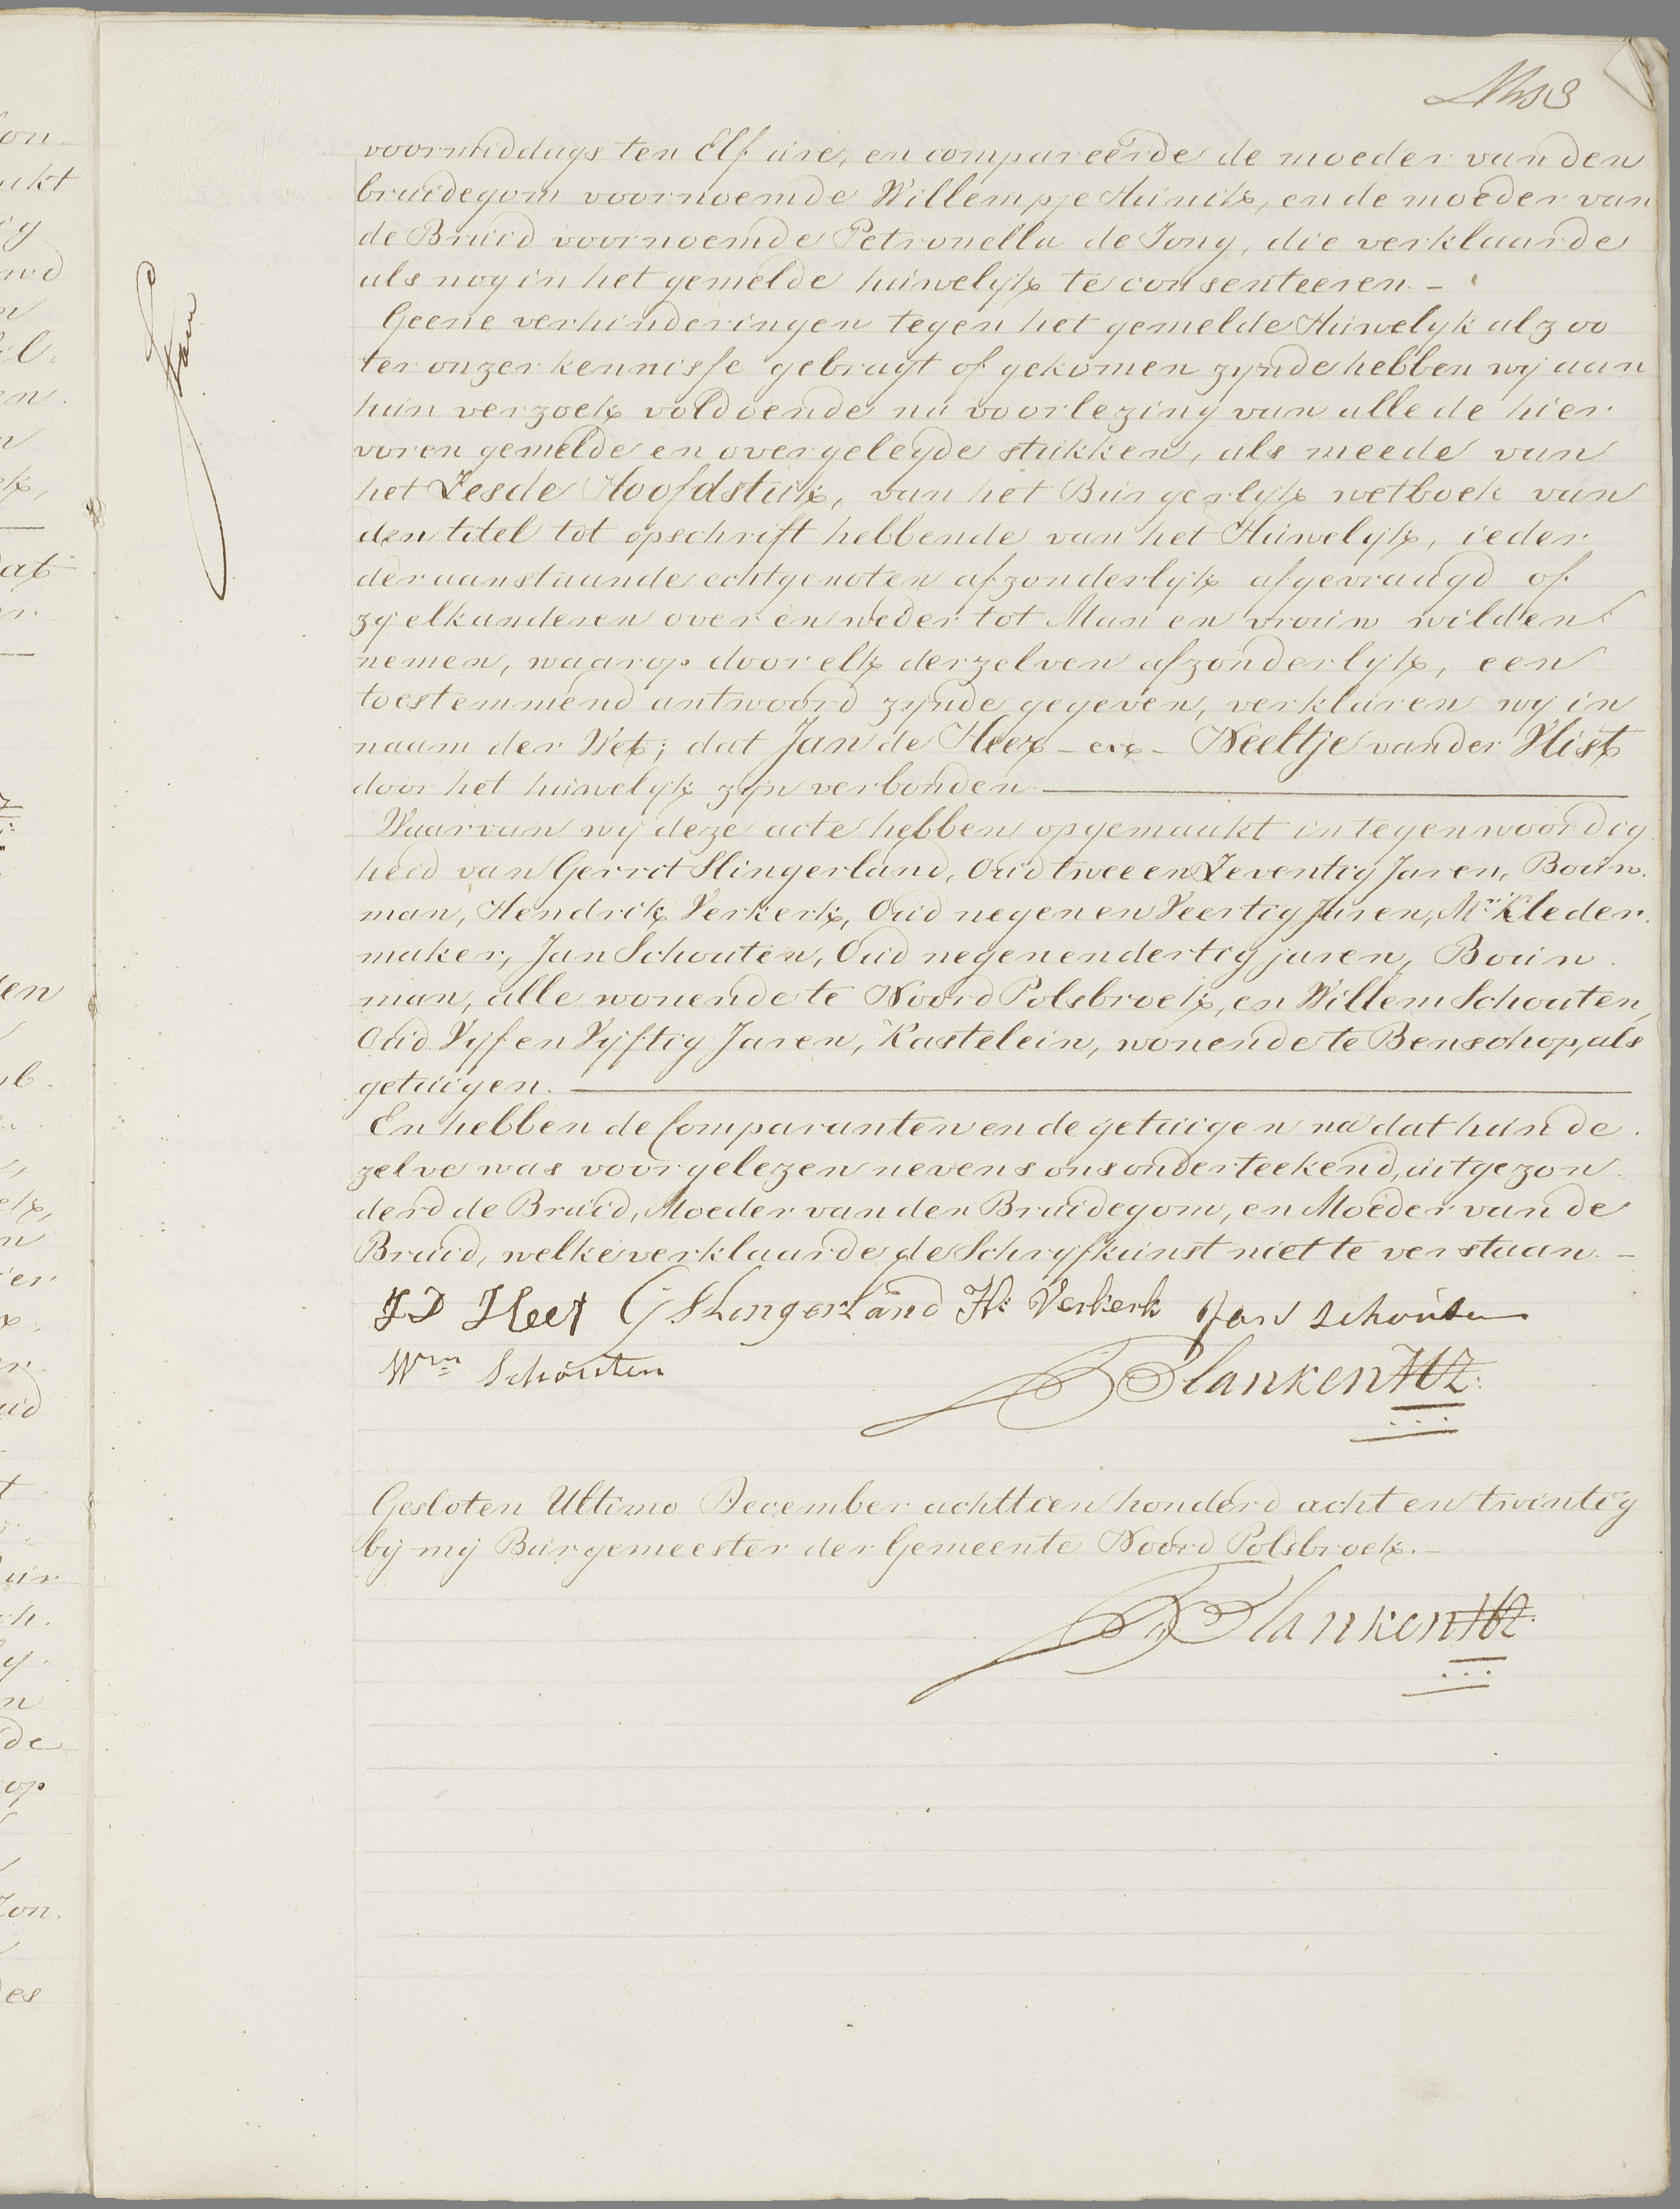 voormiddags ten Elf ure, en compareerde de moeder van den
bruidegom voornoemde Willempje Huinik, en de moeder van
de Bruid voornoemde Petronella de Jong, die verklaarde
als nog in het gemelde huwelijk te consenteeren. -
Geene verhinderingen tegen het gemelde Huwelyk alzoo
ter onzer kennisse gebragt of gekomen zynde hebben wy aan
hun verzoek voldoende na voorlezing van alle de hier
voren gemelde en overgelegde stukken, als meede van
het Zesde Hoofdstuk, van het Burgerlyk wetboek van
den titel tot opschrift hebbende van het Huwelyk, ieder
der aanstaande echtgenoten afzonderlyk afgevraagd of
zy elkanderen over en weder tot Man en vrouw wilden
nemen, waarop door elk derzelven afzonderlyk, een
toestemmend antwoord zynde gegeven, verklaren wy in
naam der Wet; dat Jan de Heer - en - Neeltje van der Vlist
door het huwelyk zyn verbonden
Waarvan wij deze acte hebben opgemaakt in tegenwoordig
heid van Gerrit Slingerland, Oud twee en Zeventig Jaren, Bouw.
man, Hendrik Verkerk, Oud negen en Veertig Jaren, Mr. Kleder.
maker, Jan Schouten, Oud negenendertig jaren, Bouw.
man, alle wonende te Noord Polsbroek, en Willem Schouten,
Oud Vyf en Vyftig Jaren, Kastelein, wonende te Benschop, als
getuigen.
En hebben de Comparanten en de getuigen na dat hun de.
zelve was voorgelezen nevens ons onderteekend, uitgezon.
derd de Bruid, Moeder van den Bruidegom, en Moeder van de
Bruid, welke verklaarde de Schryfkunst niet te verstaan. -
J D Heer G Slingerland H: Verkerk Jan Schouten
Wm Schouten
Blanken HZ:
Gesloten Ultimo December achttien honderd acht en twintig
by my Burgemeester der Gemeente Noord Polsbroek. -
Blanken HZ.